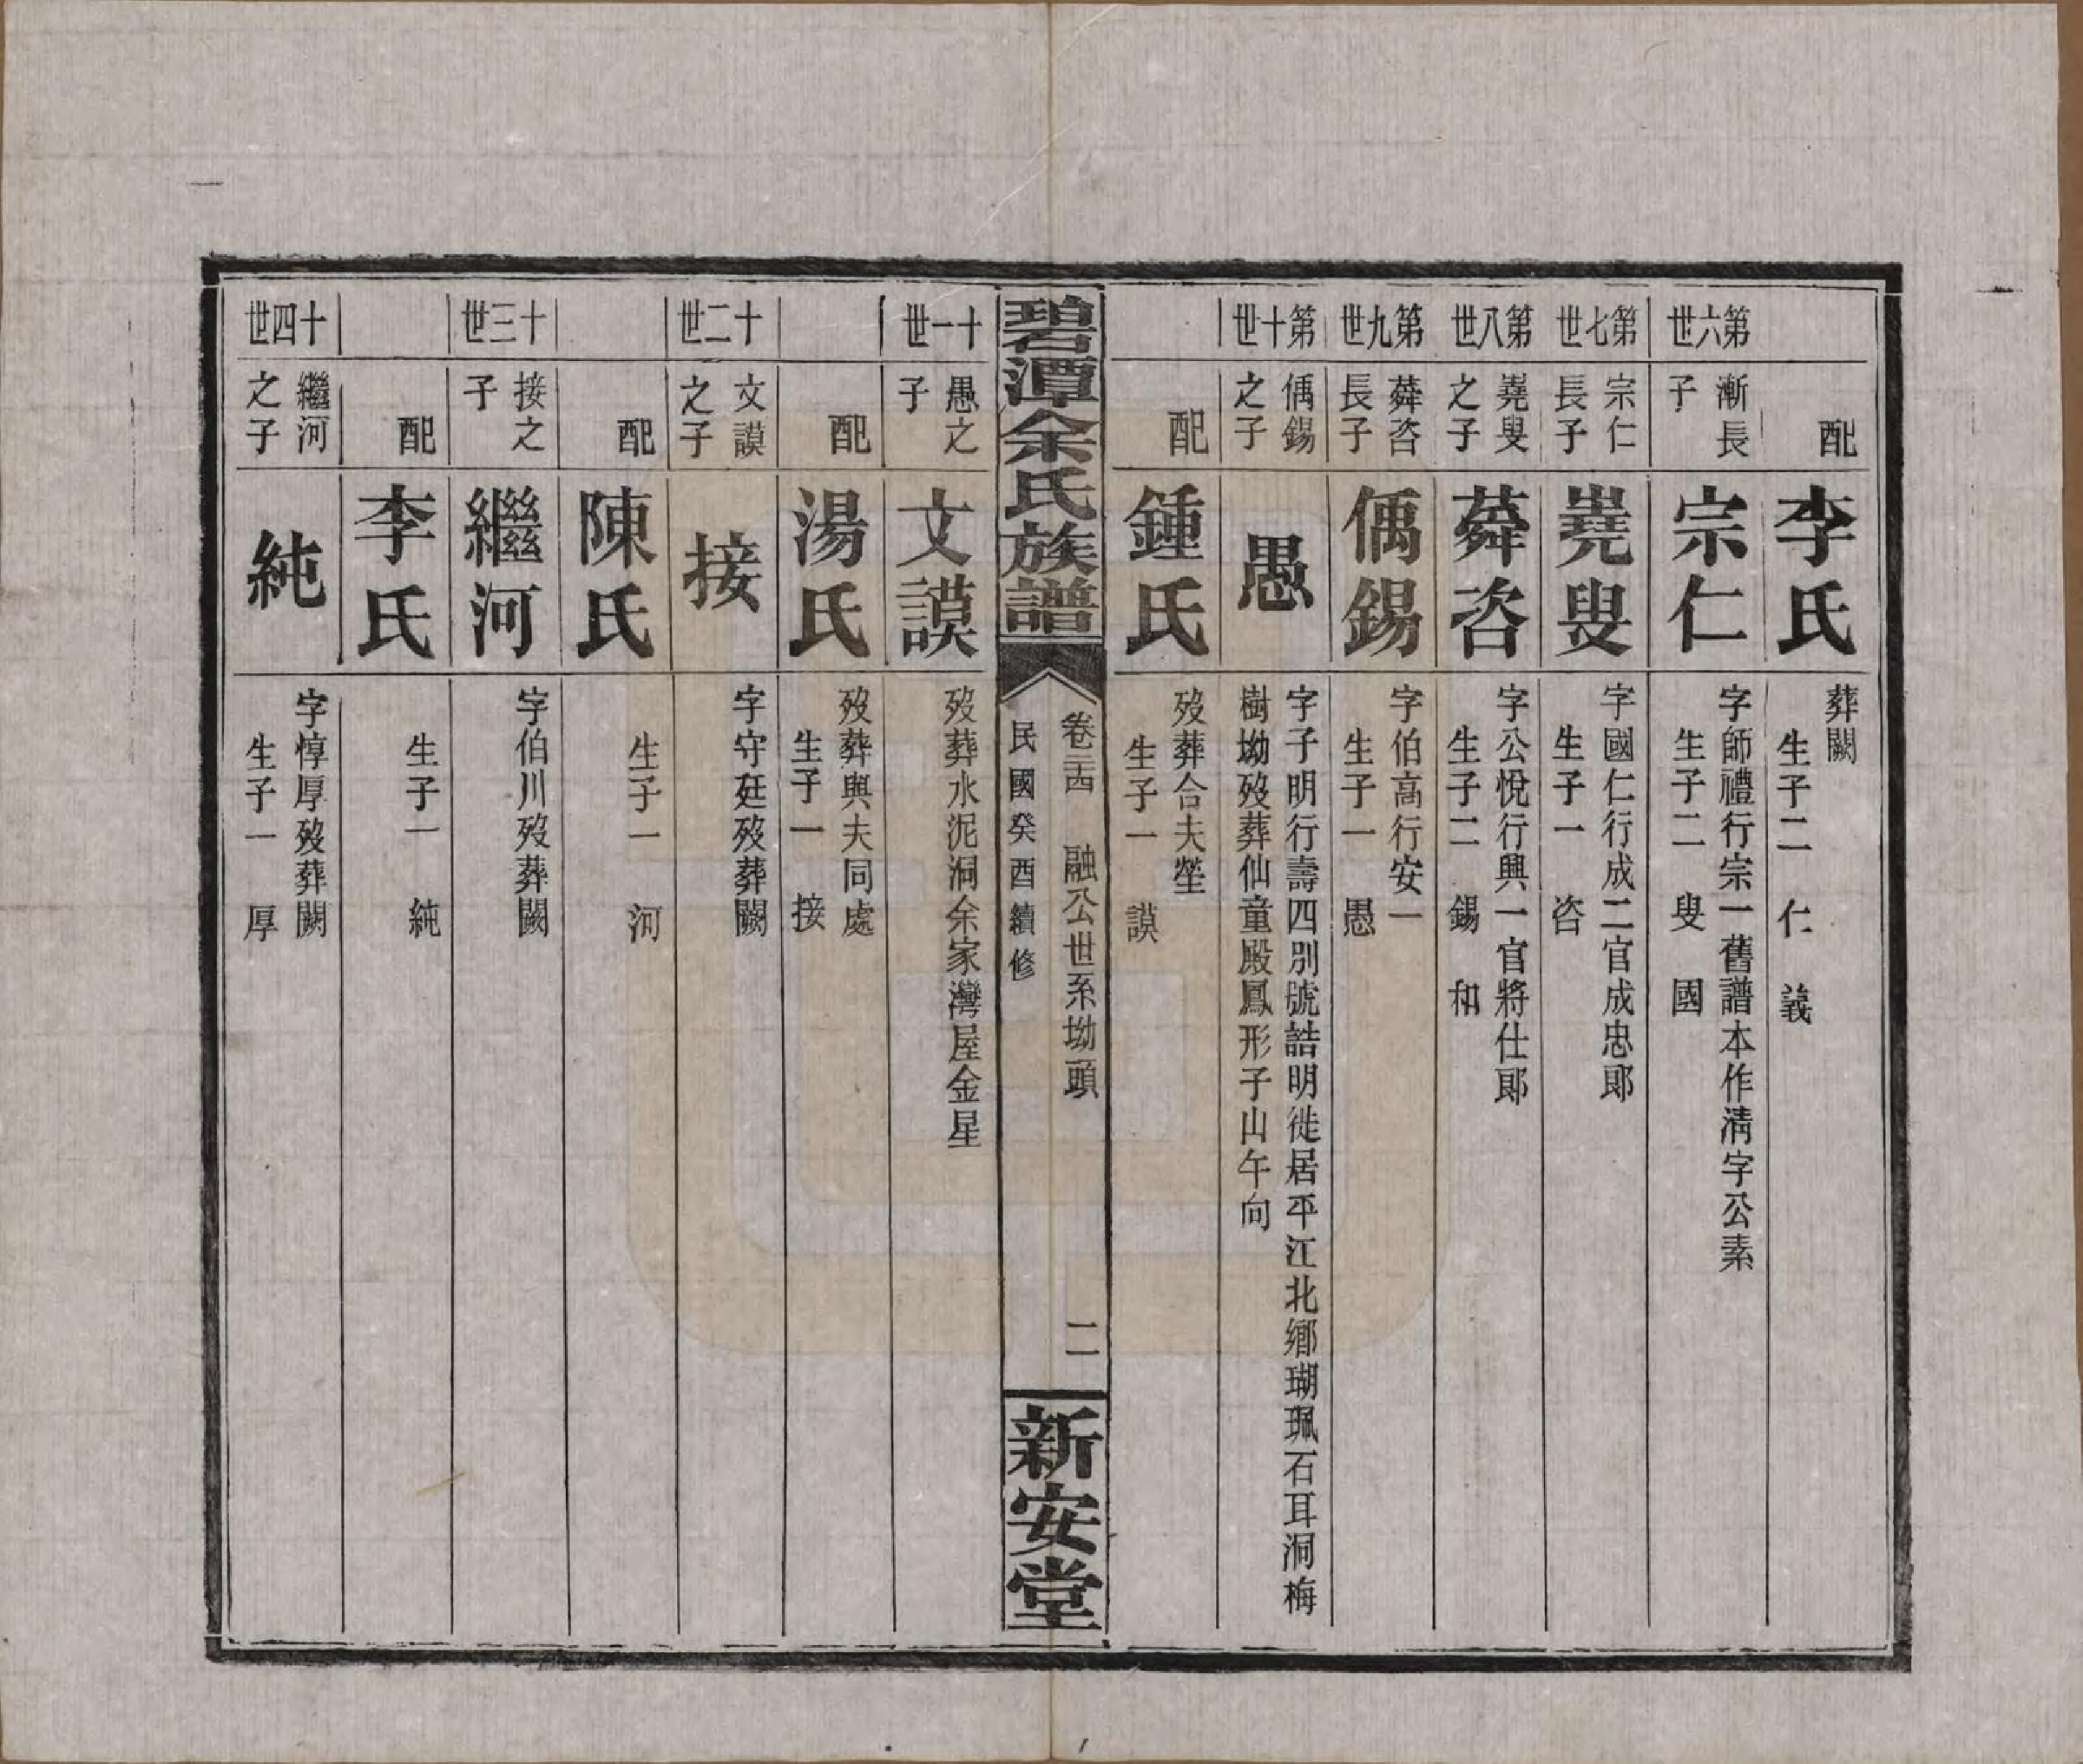 配
李氏
葬闕
生子二 仁 義
第六世
漸長
子
宗仁
字師禮行宗一舊譜本作淸字公素
生子二 叟 國
第七世
宗仁
長子
嶤叟
字國仁行成二官成忠郎
生子一 咨
第八世
嶤叟
之子
蕣咨
字公悅行興一官將仕郎
生子二 錫 和
第九世
蕣咨
長子
偊錫
字伯高行安一
生子一 愚
第十世
偊錫
之子
愚
字子明行壽四別號誥明徙居平江北鄉瑚珮石耳洞梅
樹坳歿葬仙童殿鳳形子山午向
配
鍾氏
歿葬合夫塋
生子一 謨
碧潭余氏族譜
卷二十四 融公世系坳頭 二
民國癸酉續修
新安堂
十一世
愚之
子
文謨
歿葬水泥洞余家灣屋金星
配
湯氏
歿葬與夫同處
生子一 接
十二世
文謨
之子
接
字守廷歿葬闕
配
陳氏
生子一 河
十三世
接之
子
繼河
字伯川歿葬闕
配
李氏
生子一 純
十四世
繼河
之子
純
字惇厚歿葬闕
生子一 厚